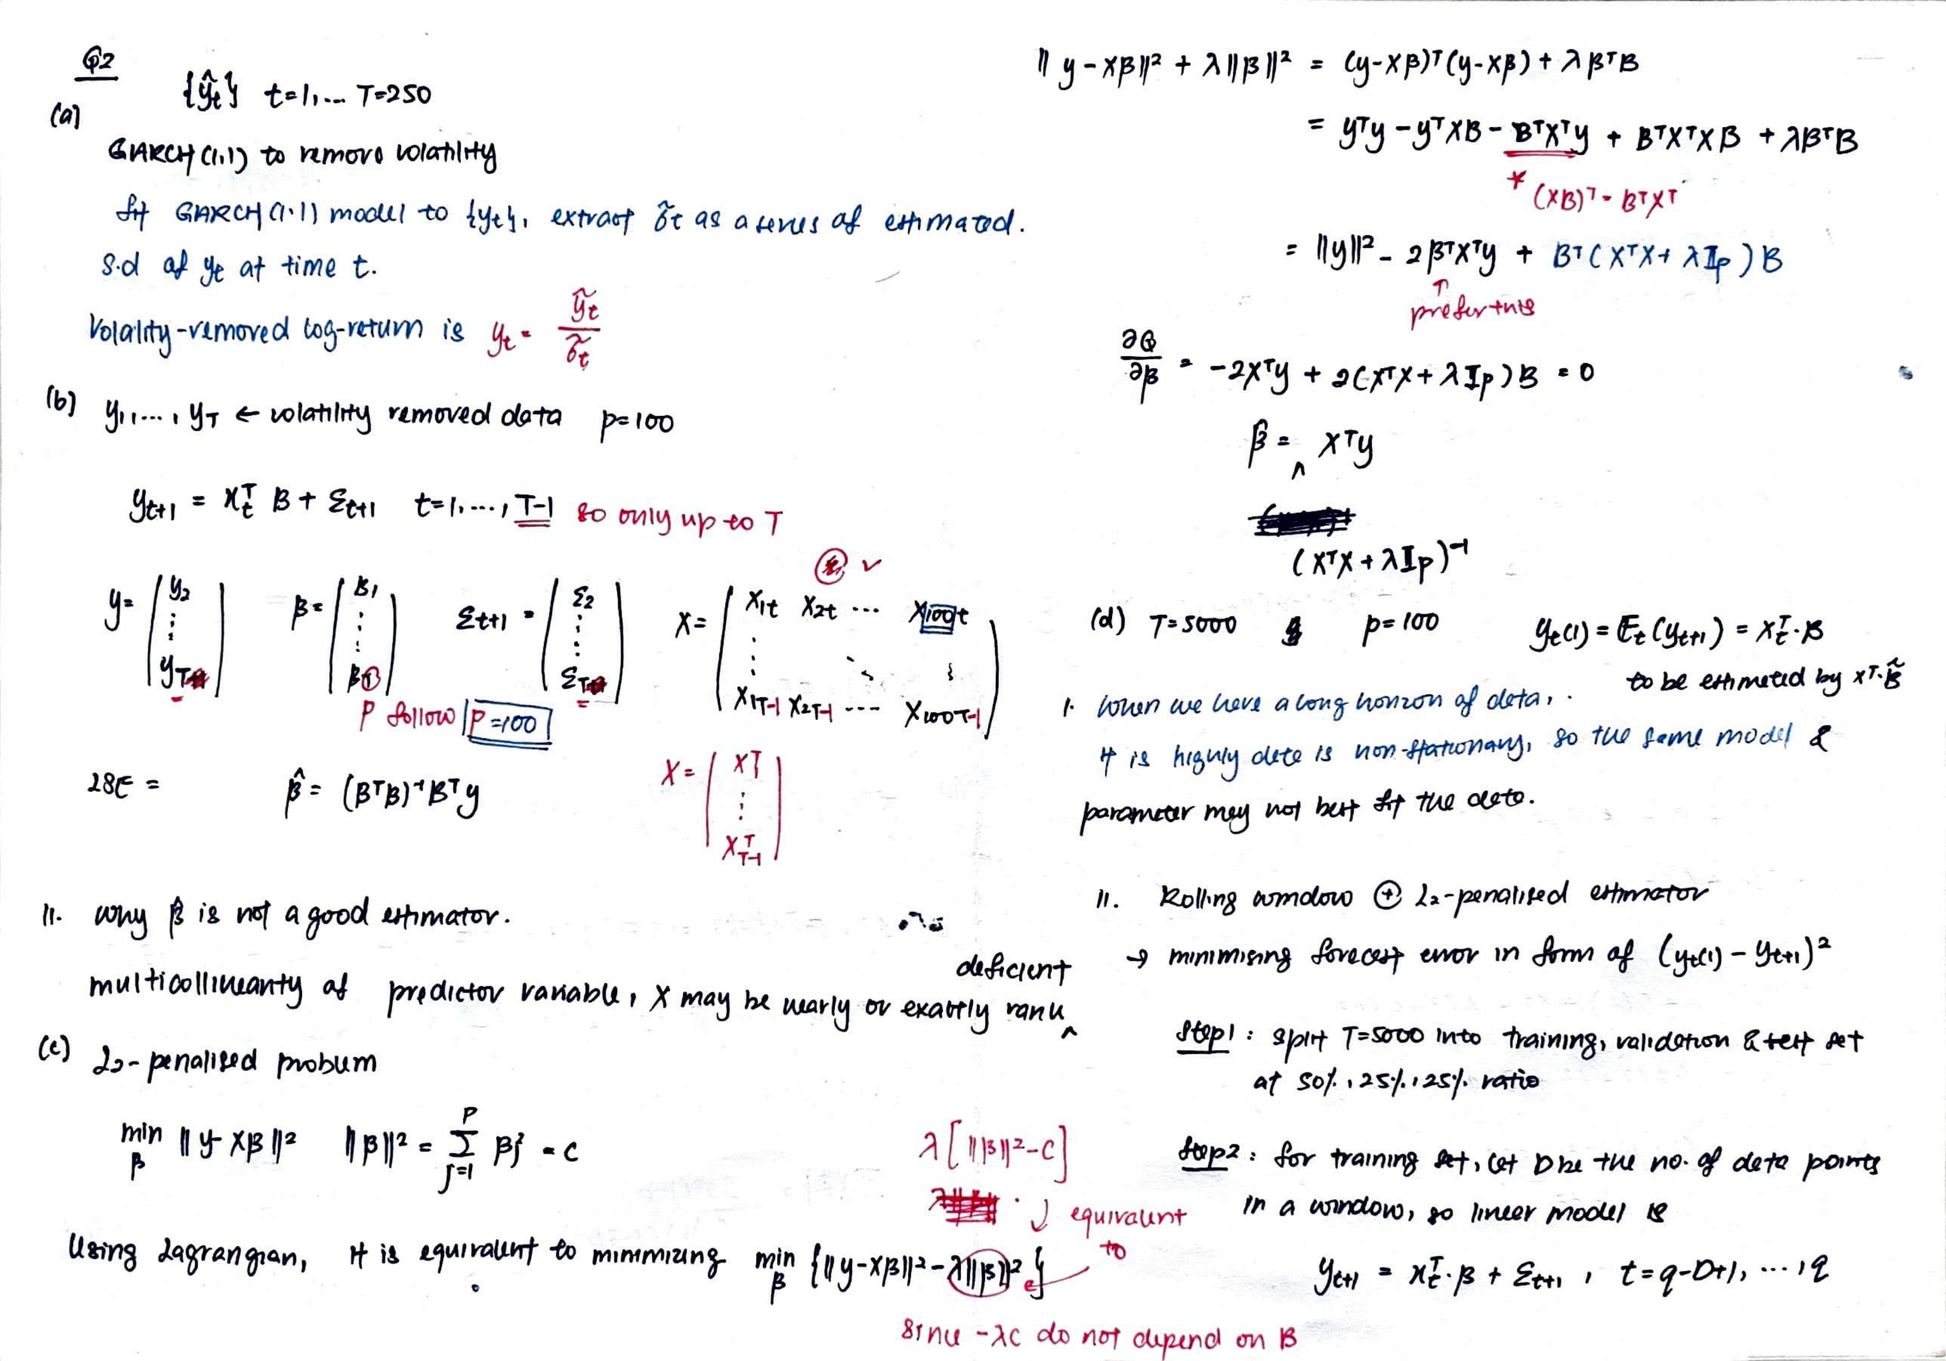 Q2
(a)
{ỹt} t=1,... T=250
GARCH(1,1) to remove volatility
fit GARCH(1.1) model to {yt}, extract σ̃t as a series of estimated.
s.d of yt at time t.
Volality-removed log-return is yt = ỹt / σ̃t
(b) y1,..., yT ← volatility removed data p=100
yt+1 = xtᵀ β + εt+1 t=1,..., T-1 so only up to T
y= ( y2 ⋮ yT ) β= ( β1 ⋮ β ) εt+1 = ( ε2 ⋮ εT ) X= ( X1t X2t ... X100t ⋮ ⋱ ⋮ X1T-1 X2T-1 --- X100T-1 )
P follow P=100
LSE = β̂ = (BᵀB)⁻¹Bᵀy X= ( X1ᵀ ⋮ XᵀT-1 )
11. why β̂ is not a good estimator.
multicollinearity of predictor variable, X may be nearly or exactly rank deficient
(c) L2-penalised problem
min β ||y-Xβ||² ||β||² = Σ j=1 p βj² = c
λ[||β||²-c]
↓ equivalent to
Using Lagrangian, it is equivalent to minimizing min β {||y-Xβ||²-λ||β||²}
since -λc do not depend on β
||y-Xβ||² + λ||β||² = (y-Xβ)ᵀ(y-Xβ) + λβᵀβ
= yᵀy - yᵀXβ - βᵀXᵀy + βᵀXᵀXβ + λβᵀβ
* (Xβ)ᵀ = βᵀXᵀ
= ||y||² - 2βᵀXᵀy + βᵀ(XᵀX + λIp)β
↑ prefer this
∂Q/∂β = -2Xᵀy + 2(XᵀX + λIp)β = 0
β̂ = ^ Xᵀy
(XᵀX + λIp)⁻¹
(d) T=5000 p=100 yt(1) = Et(yt+1) = xtᵀ.β
to be estimated by xᵀ.β̃
1. when we have a long horizon of data,.
it is highly data is non-stationary, so the same model &
parameter may not best fit the data.
11. Rolling window ⊕ L2-penalised estimator
→ minimising forecast error in form of (yt(1) - yt+1)²
Step1: split T=5000 into training, validation & test set
at 50%, 25%, 25% ratio
Step2: for training set, let D be the no. of data points
in a window, so linear model is
yt+1 = xtᵀ.β + εt+1, t=q-D+1, ..., q